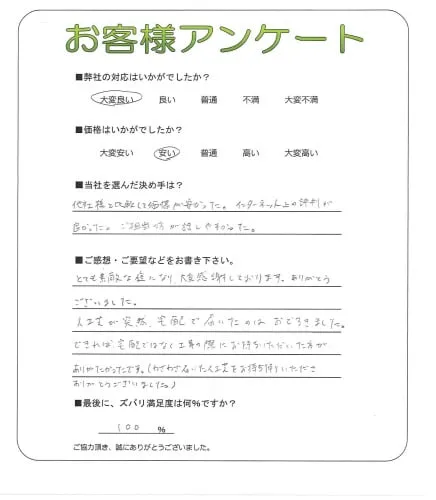 お客様アンケート
■弊社の対応はいかがでしたか？
大変良い 良い 普通 不満 大変不満
■価格はいかがでしたか？
大変安い 安い 普通 高い 大変高い
■当社を選んだ決め手は？
他社様と比較して価格が安かった。インターネット上の評判が
良かった。ご担当の方が話しやすかった。
■ご感想・ご要望などをお書き下さい。
とても素敵な庭になり、大変感謝しております。ありがとう
ございました。
人工芝が突然、宅配で届いたのはおどろきました。
できれば宅配ではなく工事の際にお持ちいただいた方が
ありがたかったです。(わざわざ届いた人工芝をお持ち帰りいただき
ありがとうございました。)
■最後に、ズバリ満足度は何％ですか？
100 %
ご協力頂き、誠にありがとうございました。